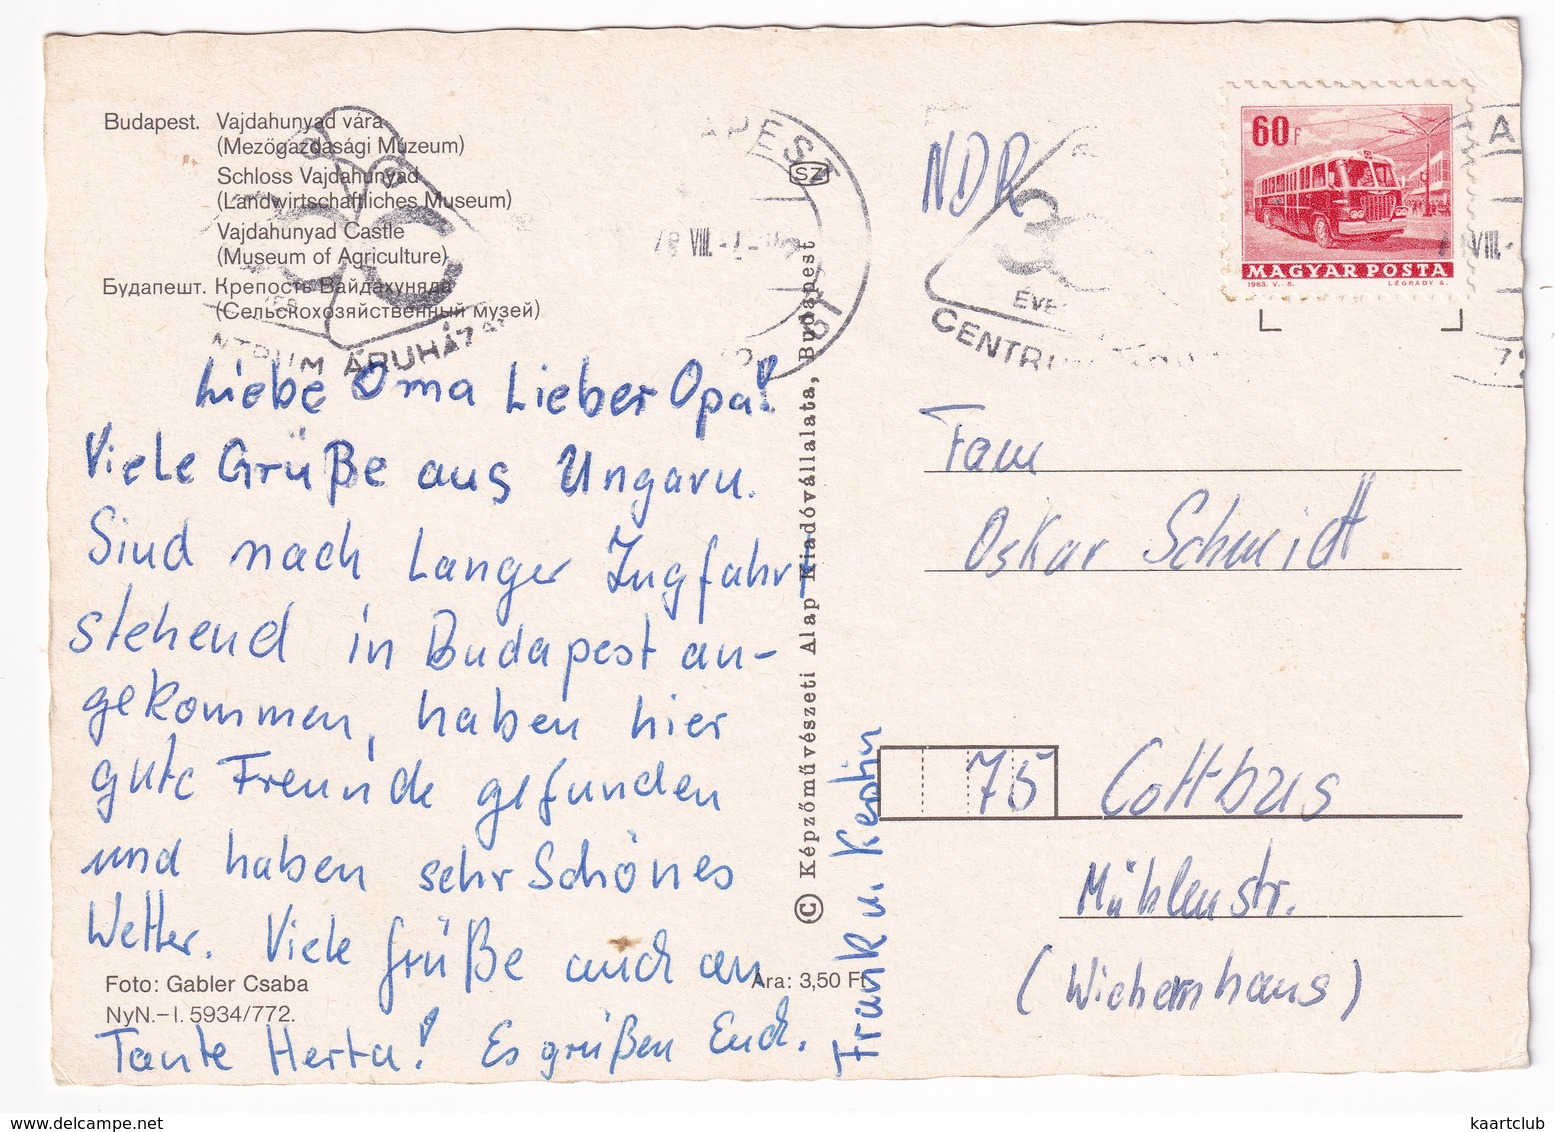 Budapest. Vajdahunyad vára
(Mezőgazdasági Múzeum)
Schloss Vajdahunyad
(Landwirtschaftliches Museum)
Vajdahunyad Castle
(Museum of Agriculture)
Будапешт. Крепость Вайдахуняда
(Сельскохозяйственный музей)
NTRUM ÁRUHÁZ
APEST
VIII.
SZ
NDR
3
ÉVE
CENTRU
60f
MAGYAR POSTA
1963. V. 5. LÉGRÁDY S.
A
VIII.
72
Liebe Oma Lieber Opa!
Viele Grüße aus Ungarn.
Sind nach Langer Zugfahrt
stehend in Budapest an-
gekommen, haben hier
gute Freunde gefunden
und haben sehr Schönes
Wetter. Viele Grüße auch an
Tante Herta! Es grüßen Euch.
Frank u. Kerstin
Foto: Gabler Csaba
NyN.–I. 5934/772.
Ára: 3,50 Ft
© Képzőművészeti Alap Kiadóvállalata, Budapest
Fam
Oskar Schmidt
75 Cottbus
Mühlenstr.
(Wichernhaus)
kaartclub